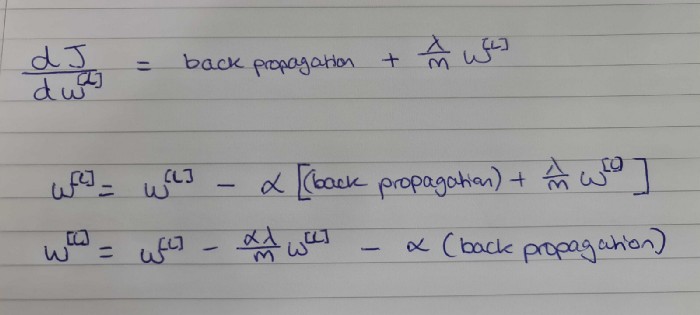 dJ/dw^[L] = back propagation + λ/m w^[L]
w^[L] = w^[L] - α [(back propagation) + λ/m w^[L]]
w^[L] = w^[L] - αλ/m w^[L] - α (back propagation)